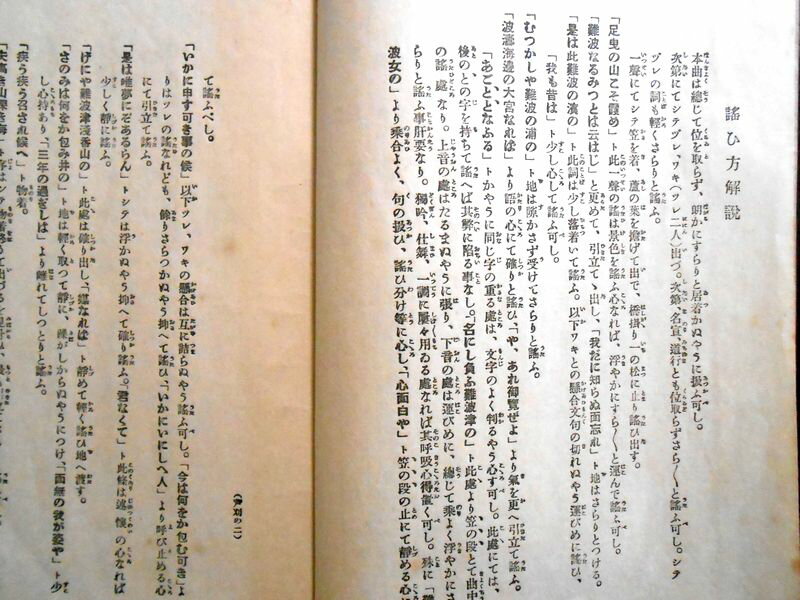 謠ひ方解説
本曲は總じて位を取らず、朗かにすらりと居着かぬやうに扱ふ可し。
次第にてシテヅレ、ワキ（ツレ二人）出づ。次第、名宣、道行とも位取らずさら〳〵と謠ふ可し。シテ
ヅレの詞も輕くさらりと謠ふ。
一聲にてシテ笠を着、蘆の葉を擔げて出で、橋掛り一の松に止り謠ひ出す。
「足曳の山こそ霞め」ト此一聲の謠は景色を謠ふ心なれば、浮やかにすら〳〵と運んで謠ふ可し。
「難波なるみつとは云はじ」と更めて、引立てゝ出し、「我だに知らぬ面忘れ」ト地はさらりとつける。
「是は此難波の濱の」ト此詞は少し落着いて謠ふ。以下ワキとの懸合文句の切れぬやう運びめに謠ひ、
「我も昔は」ト少し心して謠ふ可し。
「むつかしや難波の浦の」ト地は隙かさず受けてさらりと謠ふ。
「波濤海邊の大宮なれば」より語の心にて確りと謠ひ「や、あれ御覽ぜよ」より氣を更へ引立て謠ふ。
「あごととなふる」トかやうに同じ字の重る處は、文字のよく判るやう心す可し。此處にては、
後のとの字を持ちて謠へば其弊に陷る事なし。「名にし負ふ難波津の」ト此處より笠の段とて曲中
の謠處なり。上音の處はたるまぬやうに張り、下音の處は運びめに、總じて乘よく浮やかにさ
らりと謠ふ事肝要なり。獨吟、仕舞、一調に屢々用ゐる處なれば其呼吸心得置く可し。殊に「難
波女の」より乘合よく、句の扱ひ、謠ひ分け等に心し「心面白や」ト笠の段の止にて靜める心
て謠ふべし。
「いかに申す可き事の候」以下ツレ、ワキの懸合は互に詰らぬやう謠ふ可し。「今は何をか包む可き」よ
りはツレの謠なれども、餘りさらつかぬやう抑へて謠ひ「いかにいにしへ人」より呼び止める心
にて引立て謠ふ。
「是は唯夢にぞあるらん」トシテは浮かぬやう抑へて確り謠ふ。「君なくて」ト此條は述懷の心なれば
少しく靜に謠ふ。
「げにや難波津淺香山の」ト此處は確り出し、「媒なれば」ト靜めて輕く謠ひ地へ渡す。
「さのみは何をか包み井の」ト地は輕く取つて靜に、躁がしからぬやうにつけ、「面無の我が姿や」ト少
し心持あり、「三年の過ぎしは」より離れてしつとりと謠ふ。
「疾う疾う召され候へ」ト物着。